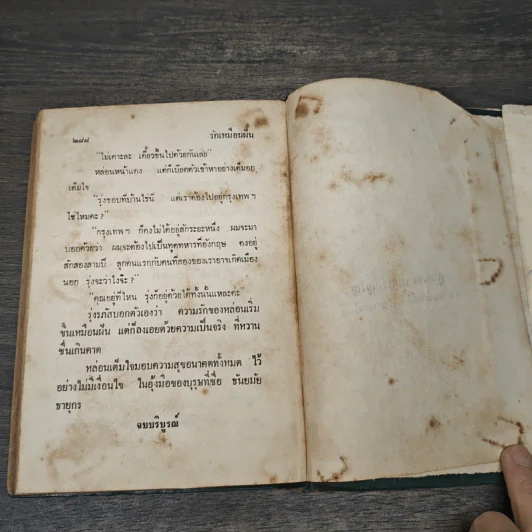 ๒๘๘ รักเหมือนฝัน
"ไม่เคาะละ เดี๋ยวขึ้นไปด้วยกันเลย"
หล่อนหน้าแดง แต่ก็เบียดตัวเข้าหาอย่างเต็มอก
เต็มใจ
"รุ่งชอบที่บ้านไร่นี่ แต่เราต้องไปอยู่กรุงเทพ ฯ
ใช่ไหมคะ?"
"กรุงเทพ ฯ ก็คงไม่ได้อยู่สักระยะหนึ่ง ผมจะมา
บอกด้วยว่า ผมจะต้องไปเป็นทูตทหารที่อังกฤษ คงอยู่
สักสองสามปี ลูกคนแรกกับคนที่สองของเราอาจเกิดเมือง
นอก รุ่งจะว่าไงจ๊ะ?"
"คุณอยู่ที่ไหน รุ่งก็อยู่ด้วยได้ทั้งนั้นแหละค่ะ"
รุ่งรภัสบอกตัวเองว่า ความรักของหล่อนเริ่ม
ขึ้นเหมือนฝัน แต่ก็ลงเอยด้วยความเป็นจริง ที่หวาน
ชื่นเกินคาด
หล่อนเต็มใจมอบความสุขอนาคตทั้งหมด ไว้
อย่างไม่มีเงื่อนไข ในอุ้งมือของบุรุษที่ชื่อ ธนัยมัย
ธายุกร
จบบริบูรณ์